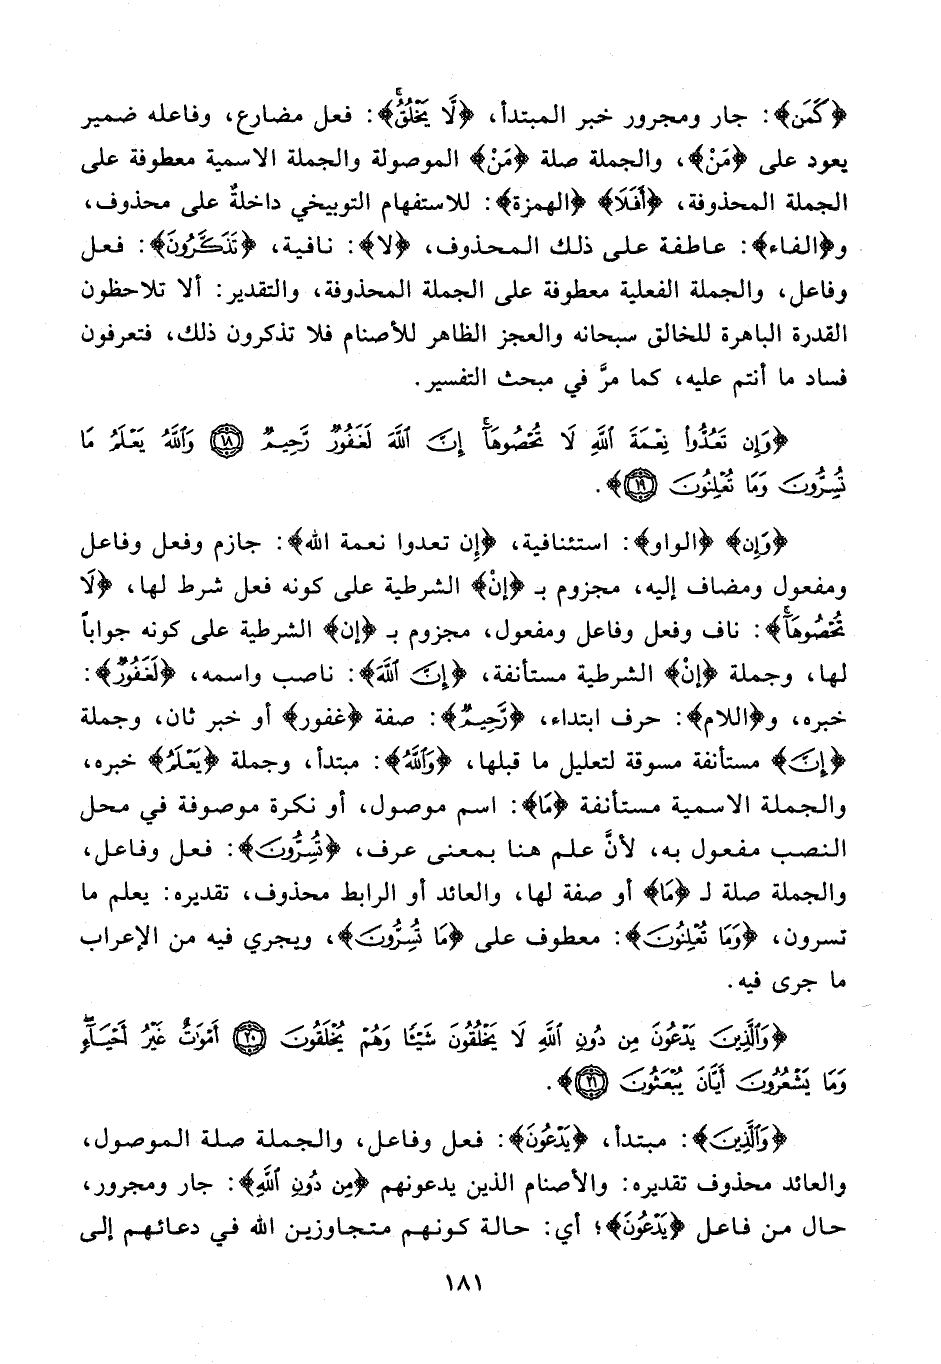 ﴿كَمَن﴾: جار ومجرور خبر المبتدأ، ﴿لَّا يَخْلُقُۚ﴾: فعل مضارع، وفاعله ضمير
يعود على ﴿مَنْ﴾، والجملة صلة ﴿مَنْ﴾ الموصولة والجملة الاسمية معطوفة على
الجملة المحذوفة، ﴿أَفَلَا﴾ ﴿الهمزة﴾: للاستفهام التوبيخي داخلةٌ على محذوف،
و﴿الفاء﴾: عاطفة على ذلك المحذوف، ﴿لا﴾: نافية، ﴿تَذَكَّرُونَ﴾: فعل
وفاعل، والجملة الفعلية معطوفة على الجملة المحذوفة، والتقدير: ألا تلاحظون
القدرة الباهرة للخالق سبحانه والعجز الظاهر للأصنام فلا تذكرون ذلك، فتعرفون
فساد ما أنتم عليه، كما مرَّ في مبحث التفسير.
﴿وَإِن تَعُدُّواْ نِعْمَةَ ٱللَّهِ لَا تُحْصُوهَآۗ إِنَّ ٱللَّهَ لَغَفُورٌ رَّحِيمٌ ١٨ وَٱللَّهُ يَعْلَمُ مَا
تُسِرُّونَ وَمَا تُعْلِنُونَ ١٩﴾.
﴿وَإِن﴾ ﴿الواو﴾: استئنافية، ﴿إِن تعدوا نعمة الله﴾: جازم وفعل وفاعل
ومفعول ومضاف إليه، مجزوم بـ ﴿إنْ﴾ الشرطية على كونه فعل شرط لها، ﴿لَا
تُحْصُوهَآۗ﴾: ناف وفعل وفاعل ومفعول، مجزوم بـ ﴿إن﴾ الشرطية على كونه جواباً
لها، وجملة ﴿إنْ﴾ الشرطية مستأنفة، ﴿إِنَّ ٱللَّهَ﴾: ناصب واسمه، ﴿لَغَفُورٌ﴾:
خبره، و﴿اللام﴾: حرف ابتداء، ﴿رَّحِيمٌ﴾: صفة ﴿غفور﴾ أو خبر ثان، وجملة
﴿إِنَّ﴾ مستأنفة مسوقة لتعليل ما قبلها، ﴿وَٱللَّهُ﴾: مبتدأ، وجملة ﴿يَعْلَمُ﴾ خبره،
والجملة الاسمية مستأنفة ﴿مَا﴾: اسم موصول، أو نكرة موصوفة في محل
النصب مفعول به، لأنَّ علم هنا بمعنى عرف، ﴿تُسِرُّونَ﴾: فعل وفاعل،
والجملة صلة لـ ﴿مَا﴾ أو صفة لها، والعائد أو الرابط محذوف، تقديره: يعلم ما
تسرون، ﴿وَمَا تُعْلِنُونَ﴾: معطوف على ﴿مَا تُسِرُّونَ﴾، ويجري فيه من الإعراب
ما جرى فيه.
﴿وَٱلَّذِينَ يَدْعُونَ مِن دُونِ ٱللَّهِ لَا يَخْلُقُونَ شَيْئًا وَهُمْ يُخْلَقُونَ ٢٠ أَمْوَٰتٌ غَيْرُ أَحْيَآءٍۖ
وَمَا يَشْعُرُونَ أَيَّانَ يُبْعَثُونَ ٢١﴾.
﴿وَٱلَّذِينَ﴾: مبتدأ، ﴿يَدْعُونَ﴾: فعل وفاعل، والجملة صلة الموصول،
والعائد محذوف تقديره: والأصنام الذين يدعونهم ﴿مِن دُونِ ٱللَّهِ﴾: جار ومجرور،
حال من فاعل ﴿يَدْعُونَ﴾؛ أي: حالة كونهم متجاوزين الله في دعائهم إلى
١٨١